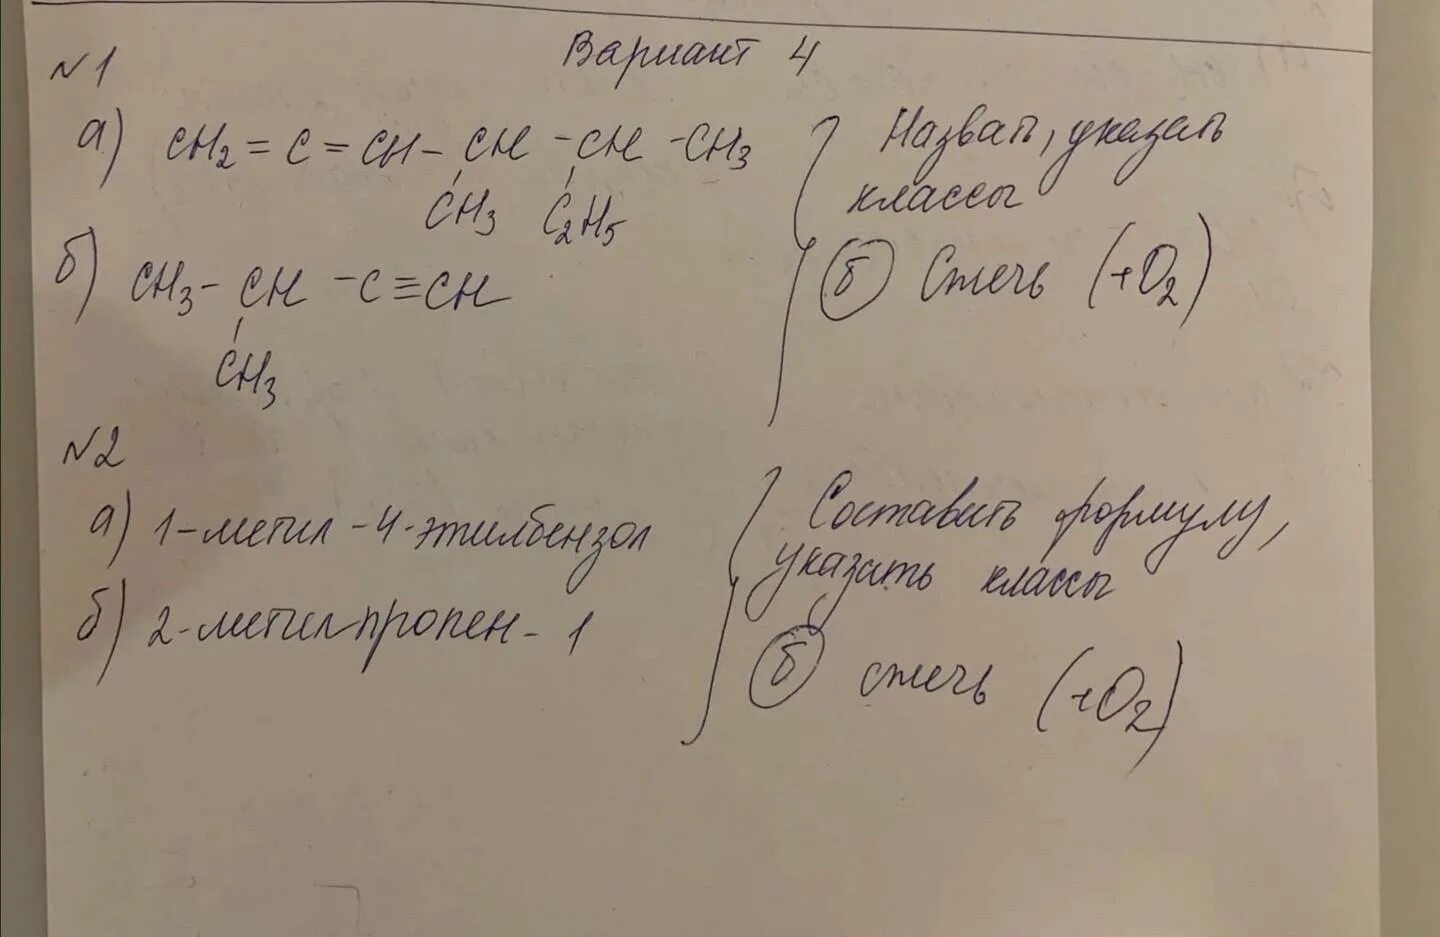 Вариант 4
№1
а) CH2 = C = CH - CH - CH - CH3
CH3 C2H5
Назвать, указать
классы
б) CH3 - CH - C ≡ CH
CH3
(б) Сжечь (+O2)
№2
а) 1-метил-4-этилбензол
б) 2-метилпропен-1
Составить формулу,
указать классы
(б) сжечь (+O2)